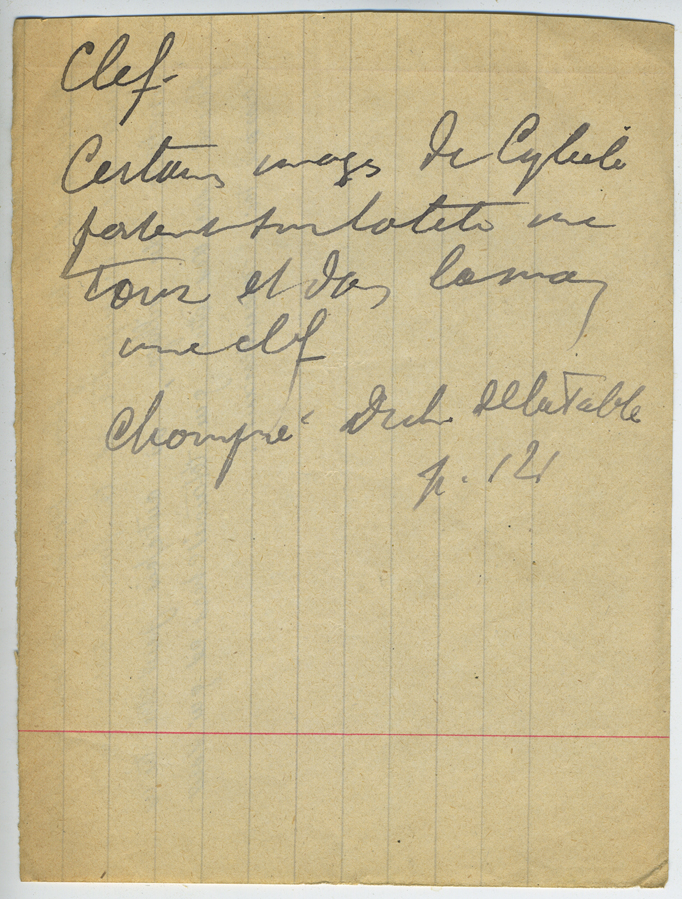 Clef -
Certains images de Cybele
portent sur la tete une
tour et dans la main
une clef
Chompré Dict. de la Fable
p. 121